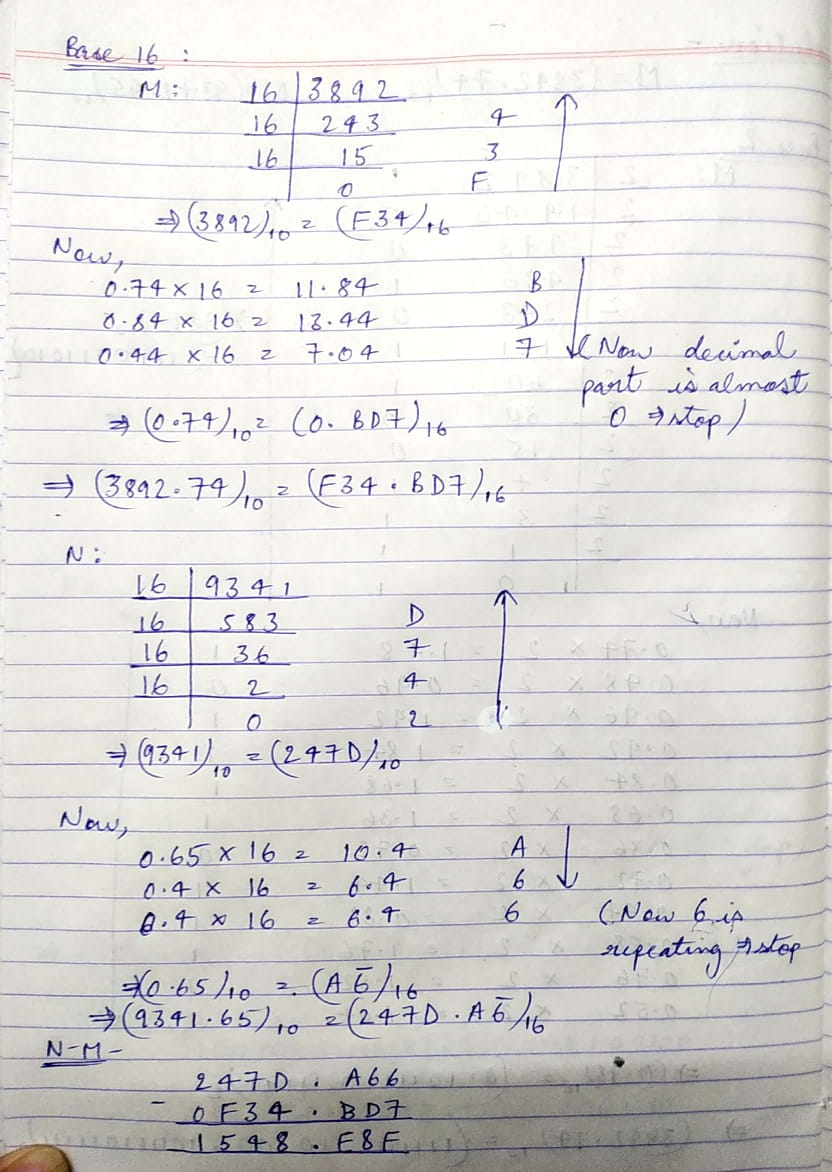 Base 16 :
M: 16 | 3892
16 | 243 4
16 | 15 3
0 F
⇒ (3892)₁₀ = (F34)₁₆
Now,
0.74 × 16 = 11.84 B
0.84 × 16 = 13.44 D
0.44 × 16 = 7.04 7 (Now decimal
part is almost
⇒ (0.74)₁₀ = (0. BD7)₁₆ 0 ⇒ stop)
⇒ (3892.74)₁₀ = (F34.BD7)₁₆
N:
16 | 9341
16 | 583 D
16 | 36 7
16 | 2 4
0 2
⇒ (9341)₁₀ = (247D)₁₀
Now,
0.65 × 16 = 10.4 A
0.4 × 16 = 6.4 6
0.4 × 16 = 6.4 6 (Now 6 is
repeating ⇒ stop
⇒ (0.65)₁₀ = (A6̅)₁₆
⇒ (9341.65)₁₀ = (247D.A6̅)₁₆
N-M-
247D . A66
- 0F34 . BD7
1548 . E8F